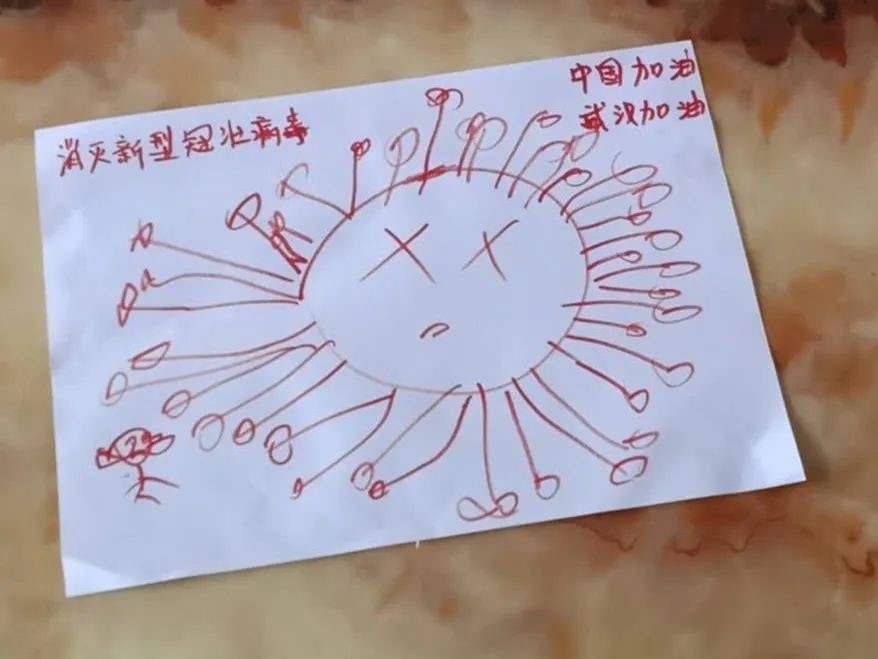 消灭新型冠状病毒
中国加油
武汉加油